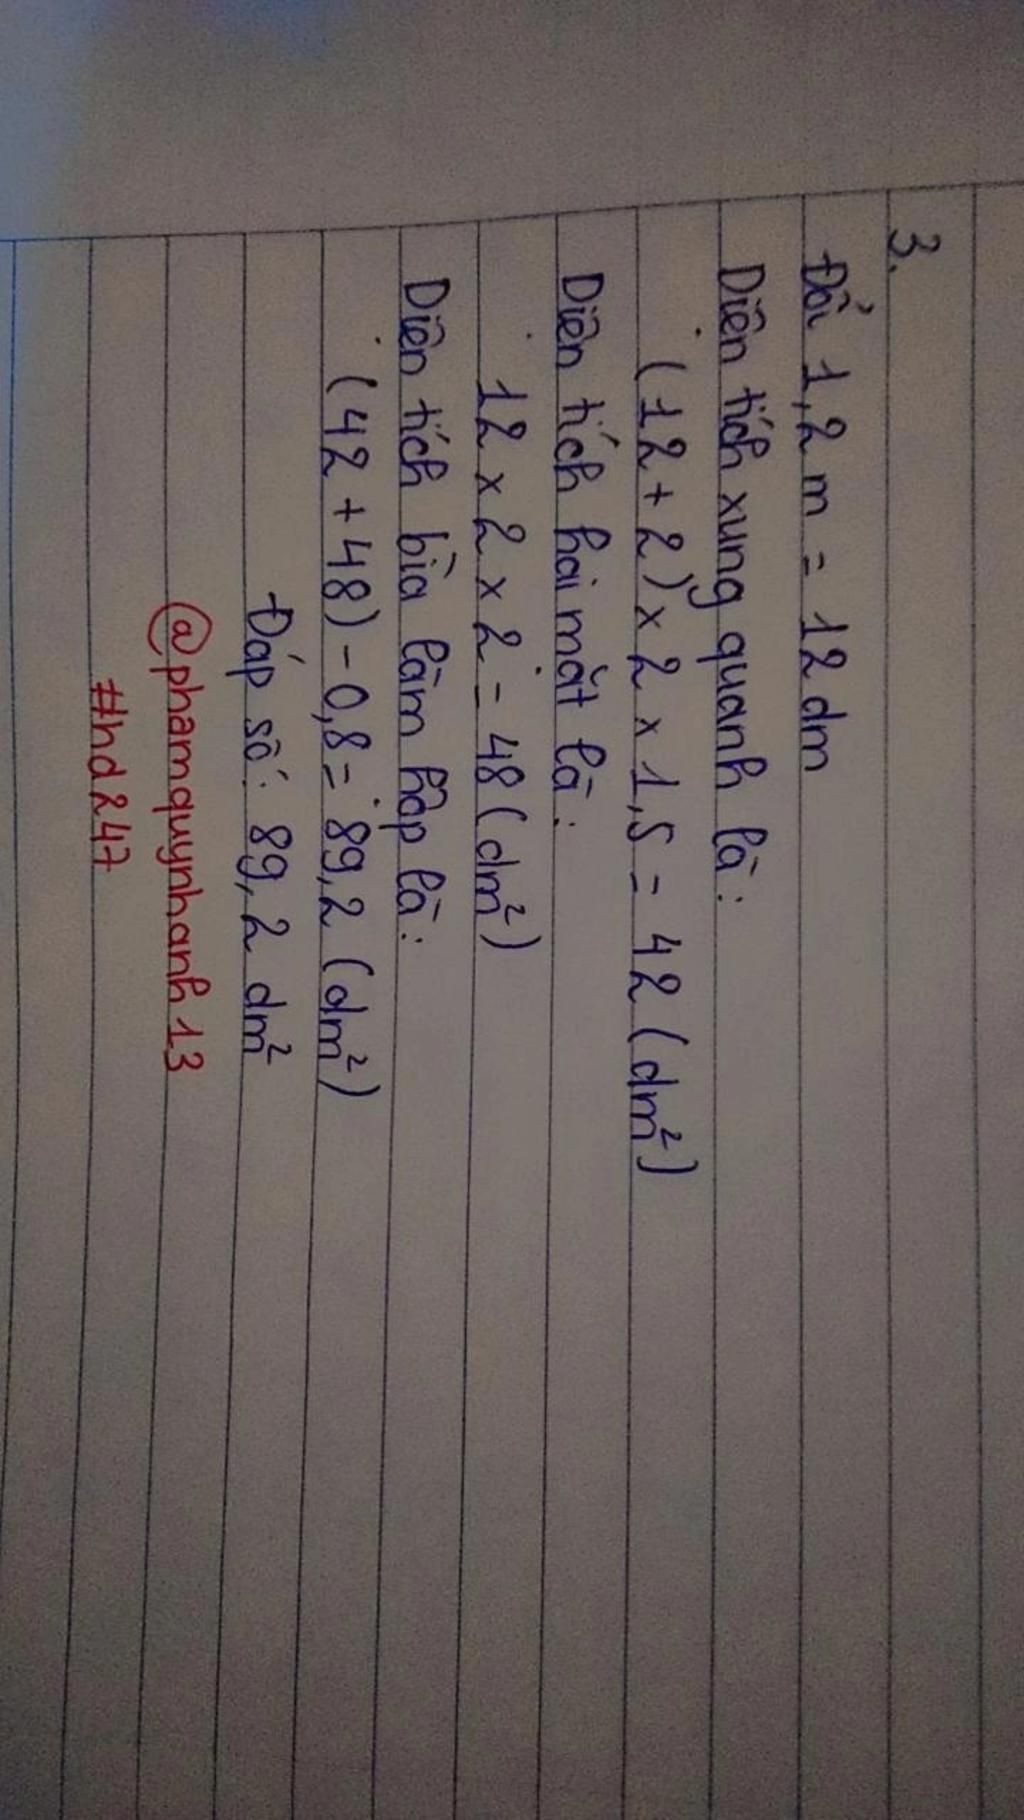 3.
Đổi 1,2 m = 12 dm
Diện tích xung quanh là:
(12 + 2) x 2 x 1,5 = 42 (dm²)
Diện tích hai mặt là:
12 x 2 x 2 = 48 (dm²)
Diện tích bìa làm hộp là:
(42 + 48) - 0,8 = 89,2 (dm²)
Đáp số: 89,2 dm²
@phamquynhanh13
#hd247